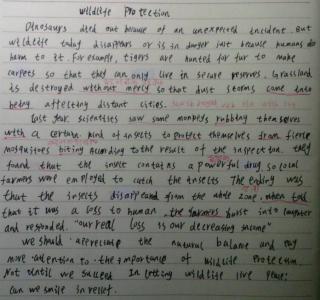 Wildlife Protection
Dinosaurs died out because of an unexpected incident. But
wildlife today disappears or is in danger just because humans do
harm to it. For example, tigers are hunted for fur to make
carpets so that they can only live in secure reserves. Grassland
is destroyed without mercy so that dust storms came into
being affecting distant cities.
Last year scientists saw some monkeys rubbing themselves
with a certain kind of insects to protect themselves from fierce
mosquitoes biting. According to the result of the inspection, they
found that the insect contains a powerful drug so local
farmers were employed to catch the insects. The ending was
that the insects disappeared from the whole zone. when told
that it was a loss to human, the farmers burst into laughter
and responded. "our real loss is our decreasing income"
we should appreciate the natural balance and pay
more attention to the importance of wildlife protection.
Not until we succeed in letting wildlife live peace
can we smile in relief.